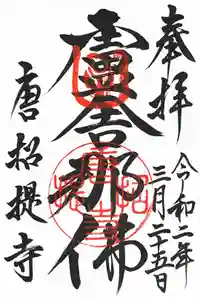 奉拝
令和二年
三月二十五日
盧舎那佛
唐招提寺